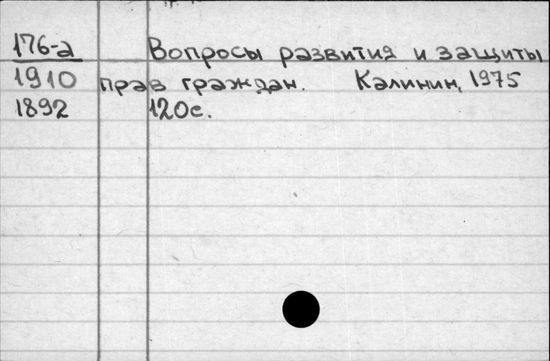 176-а Вопросы развития и защиты
1910 прав граждан. Калинин, 1975
1892 120с.